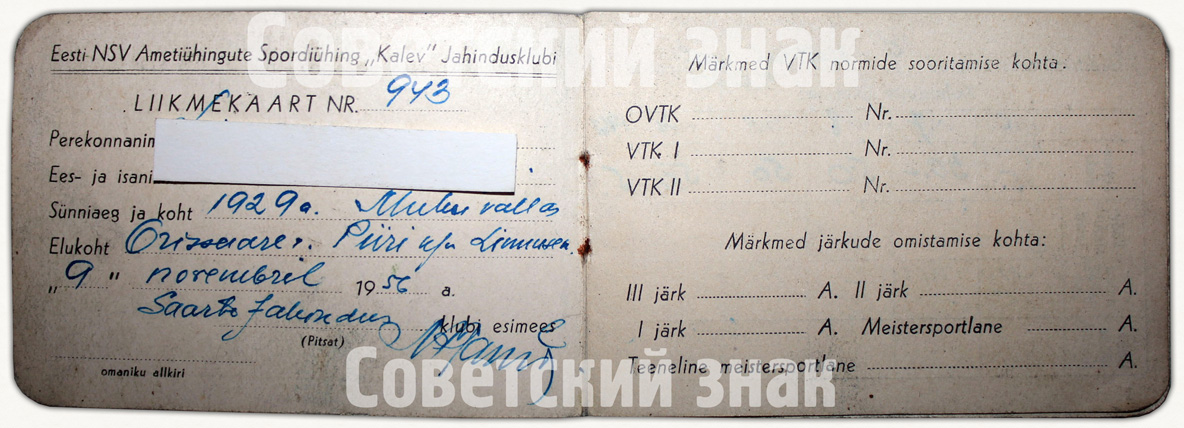 Советский знак
Eesti NSV Ametiühingute Spordiühing „Kalev" Jahindusklubi
LIIKMEKAART NR. 943
Perekonnanim
Ees- ja isani
Sünniaeg ja koht 1929 a. Muhu vallas
Elukoht Orissaare r. Piiri k/n
„ 9 " novembril 1956 a.
Saarte Jahindus klubi esimees
(Pitsat)
omaniku allkiri
Märkmed VTK normide sooritamise kohta:
OVTK Nr.
VTK I Nr.
VTK II Nr.
Märkmed järkude omistamise kohta:
III järk A. II järk A.
I järk A. Meistersportlane A.
Teeneline meistersportlane A.
Советский знак